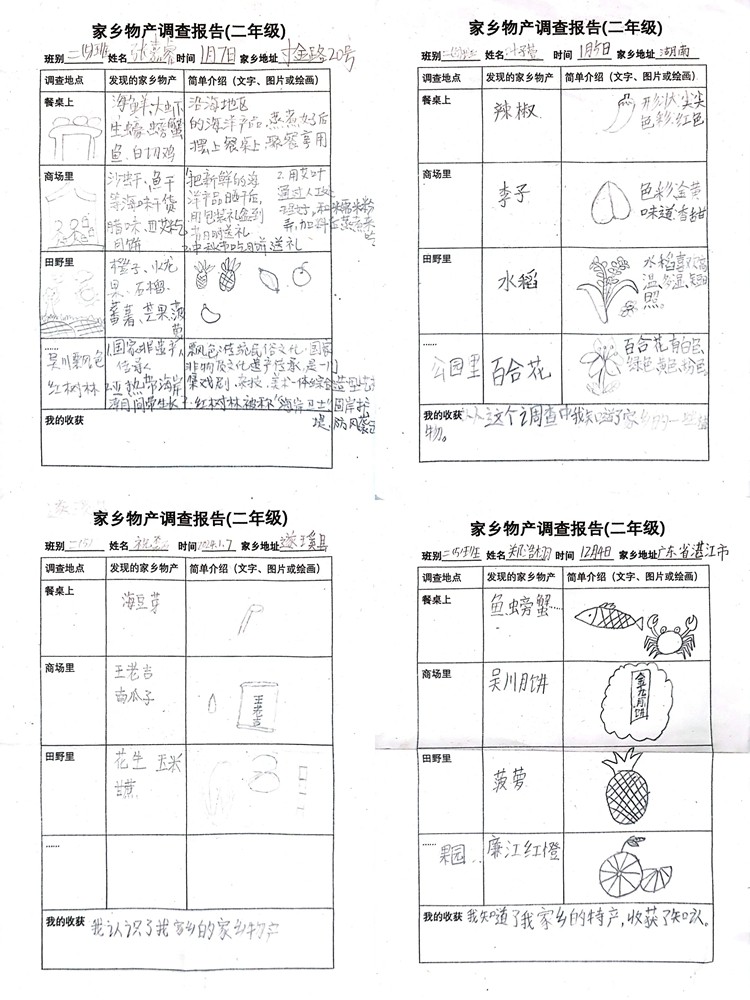 家乡物产调查报告(二年级)
班别 二(5)班 姓名 时间 1月7日 家乡地址 寸金路20号
调查地点 发现的家乡物产 简单介绍（文字、图片或绘画）
餐桌上
海鲜、大虾 沿海地区
生蚝、螃蟹 的海洋产品,蒸煮好后
鱼、白切鸡 摆上餐桌上聚餐享用
商场里
沙虫干、鱼干 1.把新鲜的海 2.用艾叶
等海味干货 洋产品晒干后,
腊味
月饼
田野里
橙子、火龙
果、石榴、
番薯、芒果、菠萝
……
吴川飘色 1.国家非遗
红树林 2.亚热带海岸
飘色:传统民俗文化,国家
非物质文化遗产传承,是一门
集戏剧、杂技、美术一体综合
红树林被称“海岸卫士”固岸护
堤、防风
我的收获
家乡物产调查报告(二年级)
班别 姓名 时间 1月5日 家乡地址 湖南
调查地点 发现的家乡物产 简单介绍（文字、图片或绘画）
餐桌上 辣椒 形状:尖尖
色彩:红色
商场里 李子 色彩:金黄
味道:香甜
田野里 水稻 水稻喜欢高
温、多湿、短日
照。
……
公园里 百合花 百合花有白色、
绿色、黄色、粉色
我的收获 从这个调查中我知道了家乡的一些植
物。
家乡物产调查报告(二年级)
班别 二(5) 姓名 时间 2024.1.7 家乡地址 遂溪县
调查地点 发现的家乡物产 简单介绍（文字、图片或绘画）
餐桌上 海豆芽
商场里 王老吉
南瓜子
王老吉
田野里 花生 玉米
……
我的收获 我认识了我家乡的家乡物产
家乡物产调查报告(二年级)
班别 二(5)班 姓名 时间 12月4日 家乡地址 广东省湛江市
调查地点 发现的家乡物产 简单介绍（文字、图片或绘画）
餐桌上 鱼螃蟹……
商场里 吴川月饼
金九月饼
田野里 菠萝
……
果园 廉江红橙
我的收获 我知道了我家乡的特产,收获了知识。